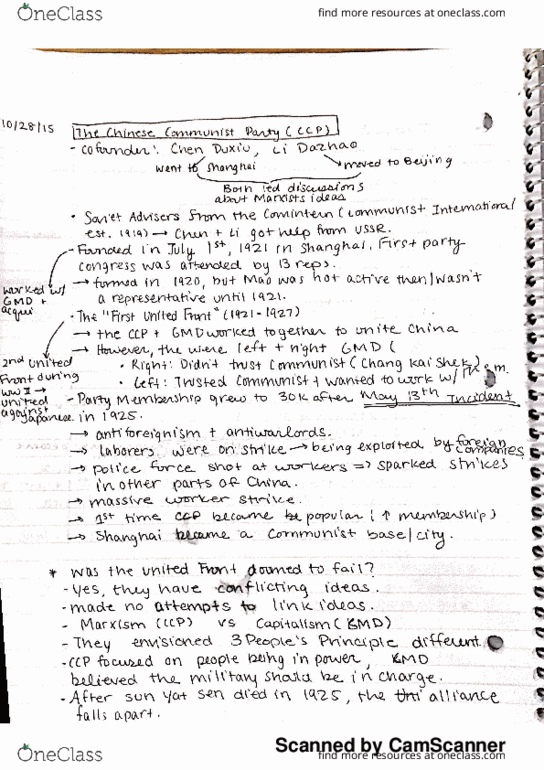 OneClass
find more resources at oneclass.com
10/28/15
The Chinese Communist Party (CCP)
- cofounder: Chen Duxiu, Li Dazhao
went to Shanghai
moved to Beijing
Both led discussions
about Marxists ideas
• Soviet Advisers from the Comintern (Communist International
est. 1919) → Chen + Li got help from USSR.
- Founded in July 1st, 1921 in Shanghai. First party
congress was attended by 13 reps.
→ formed in 1920, but Mao was not active then/wasn't
a representative until 1921.
worked w/
GMD +
acqui
• The "First United Front" (1921-1927)
→ the CCP + GMD worked together to unite China
→ However, the were left + right GMD (
• Right: Didn't trust Communist (Chang Kai Shek)
• Left: Trusted Communist + wanted to work w/ them.
2nd United
Front during
WW I →
united
against
Japanese
- Party Membership grew to 30K after May 13th Incident
in 1925.
→ antiforeignism + antiwarlords.
→ laborers were on strike → being exploited by foreign
companies
→ police force shot at workers => sparked strikes
in other parts of China.
→ massive worker strike.
→ 1st time CCP became be popular (↑ membership)
→ Shanghai became a Communist base/city.
* was the united Front doomed to fail?
- Yes, they have conflicting ideas.
- made no attempts to link ideas.
- Marxism (CCP) vs Capitalism (GMD)
- They envisioned 3 People's Principle different
- CCP focused on people being in power, GMD
believed the military should be in charge.
- After sun yat sen died in 1925, the alliance
falls apart.
Scanned by CamScanner
OneClass
find more resources at oneclass.com